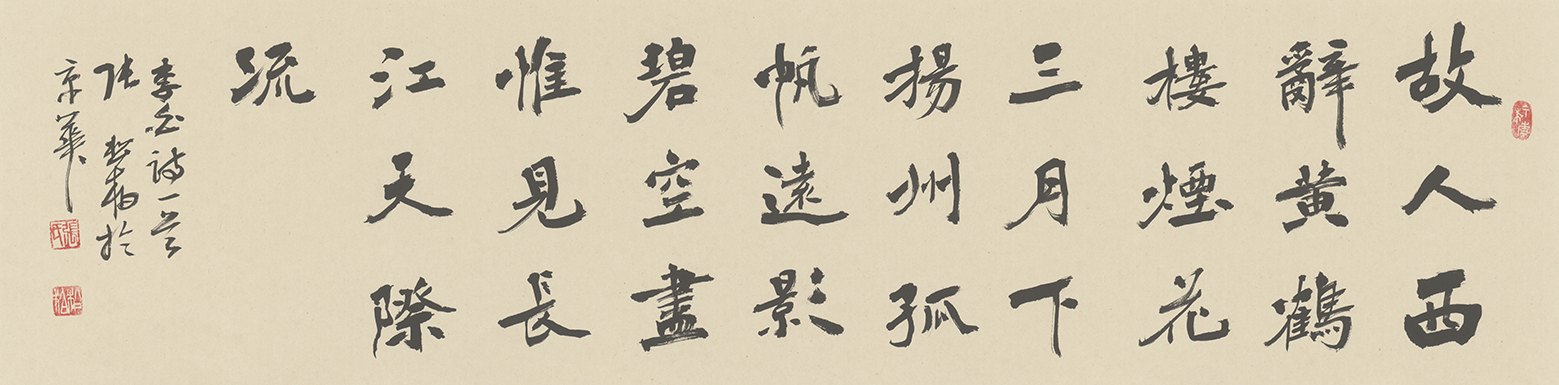 故人西
辭黄鶴
樓煙花
三月下
揚州孤
帆遠影
碧空盡
惟見長
江天際
流
李白詩一首
张柏於
京華
張氏